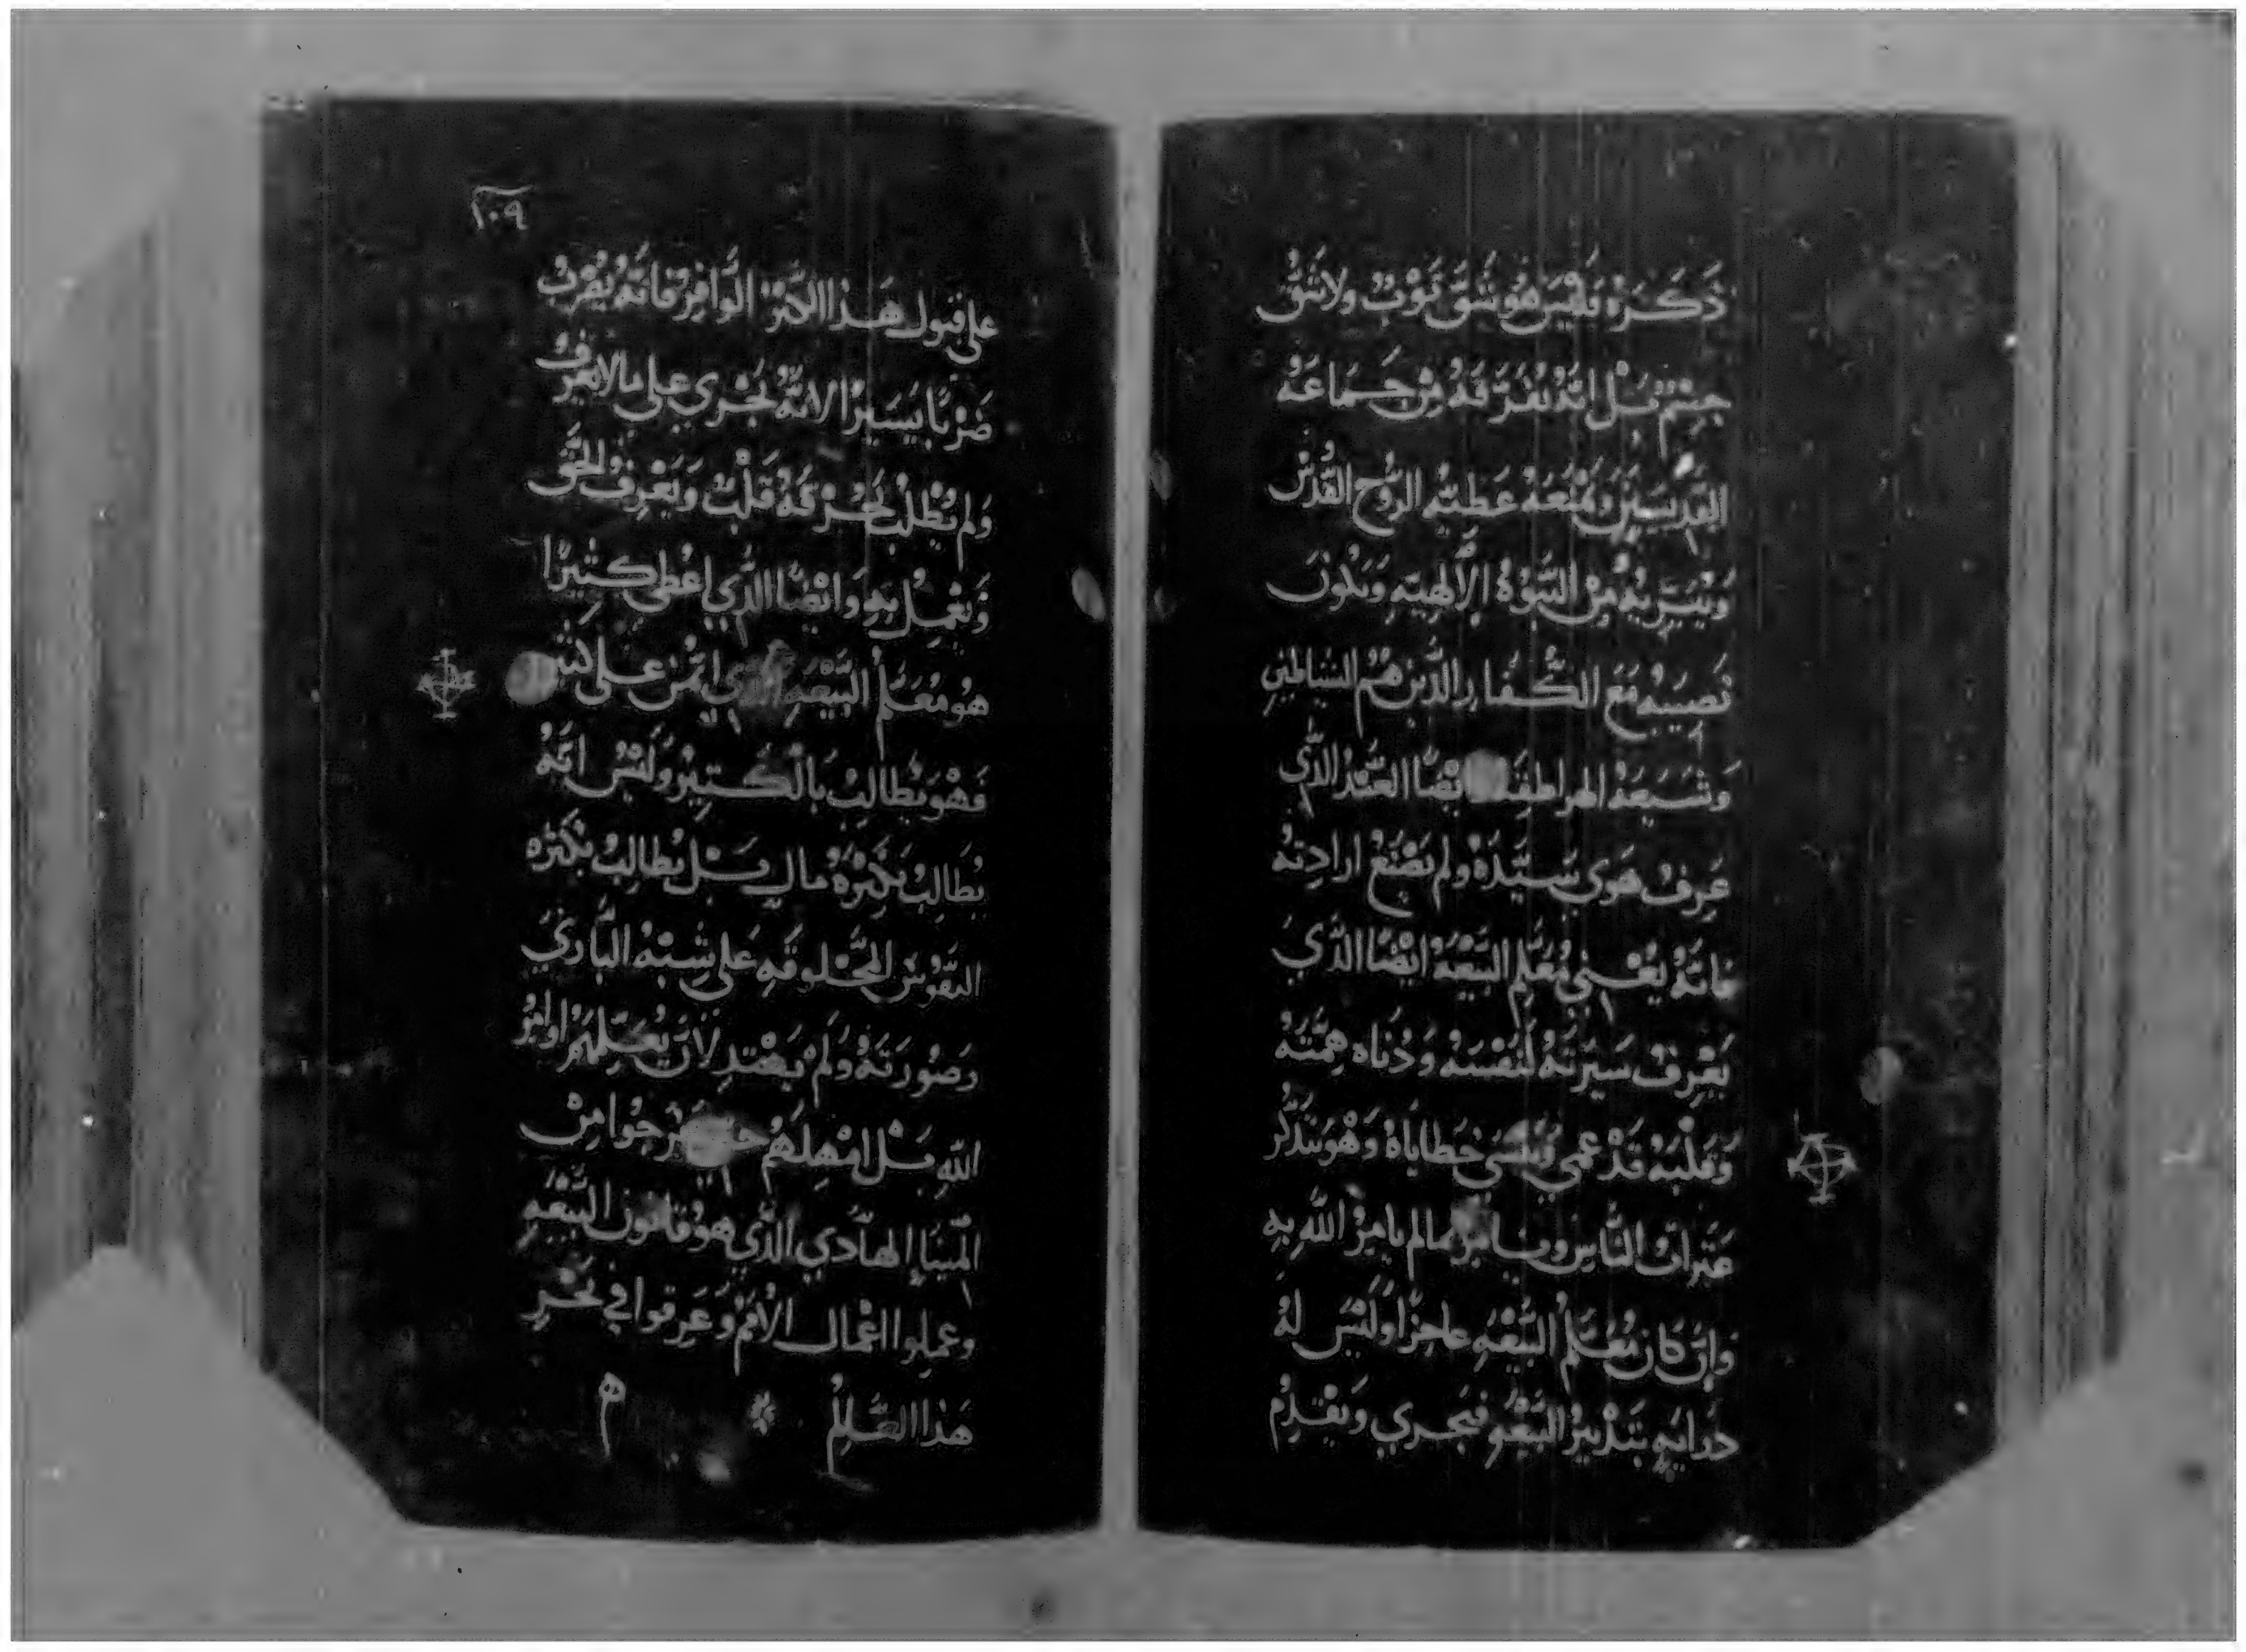 ذَكَرَهُ لَيْسَ هُو شَقَّ ثَوْبٌ ولا شَقُّ
جِسْمٌ بَلْ انَّهُ يُفَرّقَهُ مِنْ جَمَاعَهْ
القِدِيسَيِنْ وَيمْنَعَهُ عَطيته الرُّوح القُدُسْ
مِنْ النُبُوَّةُ الإلَهِيَه وَيَكُونَ
نَصِيبُه مَعَ الكُفَّار الذَّينَ هُمْ الشياطينِ
وَشَيعَةُ الهراطقه ايْضًا العَبْدُ الذَّي
عَرِفُ هَوى سَيّدَهُ ولم يَصْنَعْ ارادِتهُ
فانَّهُ يَعْني مُعَلّم البَيْعَهْ ايْضًا الذَّي
يَعْرِفُ سَيرَتهُ لَنَفْسَهُ وَدُنَاه هِمَّتَهُ
وَقلْبَهُ قَدْ عمي وَينْسَي خطَايَاهُ وَهْو يَتَذَكّر
عَثراتُ النَّاسِ ويامر بمالم يامِرُ اللَّه بِهِ
وَانْ كَانَ مُعَلّمُ البَيْعَهِ عاجزًا ولَيْسَ لهُ
دَرايَهٍ بتَدْبيرُ البَيْعَهِ فيجري وَيَقْدِمُ
١٠٩
على قبول هَذا الكنزْ الوَّافِرْ فَانّهُ يُضْرَبُ
ضَرْبًا يَسَيرْا لانهُّ يَجْري على مالا يعْرِفُ
ولم يَطْلُبْ بَحُرْقَهْ قَلْبٌ وَيَعْرِفُ الحَقَّ
وَيَعْمِلُ بِهِ وَايْضًا الذَّي اعْطى كثيرًا
هُو مُعَلّمُ البَيْعَهِ الذَّي ايتُمْن على كثير
فَهْوَ يُطَالبُ بَالْكَتيرْ ولَيْسَ انّهُ
يُطَالِبُ بَكَثرَهُ مالٍ بَل يُطالِبُ بكثره
النفَوُسْ المَخْلوقَهِ عَلى شِبْهُ البَّاري
وَصُورَتَهُ وَلَمْ يَهْتدِ لانَ يُعَلّمَهُمْ اوامرُ
اللَّه بَل امْهِلَهُمْ حتى خرجُوا مِنْ
المْينَا الهَّادي الذَّي هو قانون البَيْعَهِ
وعمِلوا اعْمال الأممْ وَغَرِقوا في بَحْرِ
هَذا العَّالِمْ